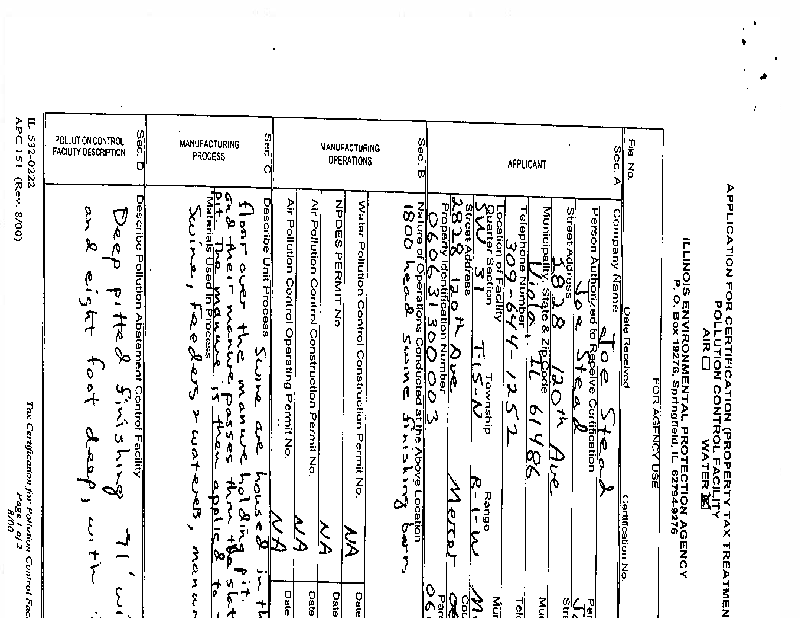 APPLICATION FOR CERTIFICATION (PROPERTY TAX TREATMEN
POLLUTION CONTROL FACILITY
AIR ☐ WATER ☒
ILLINOIS ENVIRONMENTAL PROTECTION AGENCY
P. O. Box 19276, Springfield, IL 62794-9276
FOR AGENCY USE
File No. Date Received Certification No.
Sec. A
APPLICANT
Company Name
Joe Stead
Person Authorized to Receive Certification
Joe Stead
Street Address
2828 120th Ave
Municipality, State & Zip Code
Viola, IL 61486
Telephone Number
309-644-1252
Location of Facility
Quarter Section Township Range
SW 31 T-15-N R-1-W
Street Address
2828 120th Ave Mercer
Property Identification Number
060631300003
Sec. B
MANUFACTURING OPERATIONS
Nature of Operations Conducted at the Above Location
1800 head swine finishing barn.
Water Pollution Control Construction Permit No. NA Date
NPDES PERMIT No. NA Date
Air Pollution Control Construction Permit No. NA Date
Air Pollution Control Operating Permit No. NA Date
Sec. C
MANUFACTURING PROCESS
Describe Unit Process Swine are housed in th
floor over the manure holding pit.
and their manure passes thru the slat
pit. The manure is then applied to
Materials Used in Process
Swine, feeders & waterers, manur
Sec. D
POLLUTION CONTROL FACILITY DESCRIPTION
Describe Pollution Abatement Control Facility
Deep pitted finishing 71' wi
and eight foot deep, with
IL 532-0222
APC 151 (Rev. 8/00)
Tax Certification for Pollution Control Fac
Page 1 of 2
8/00